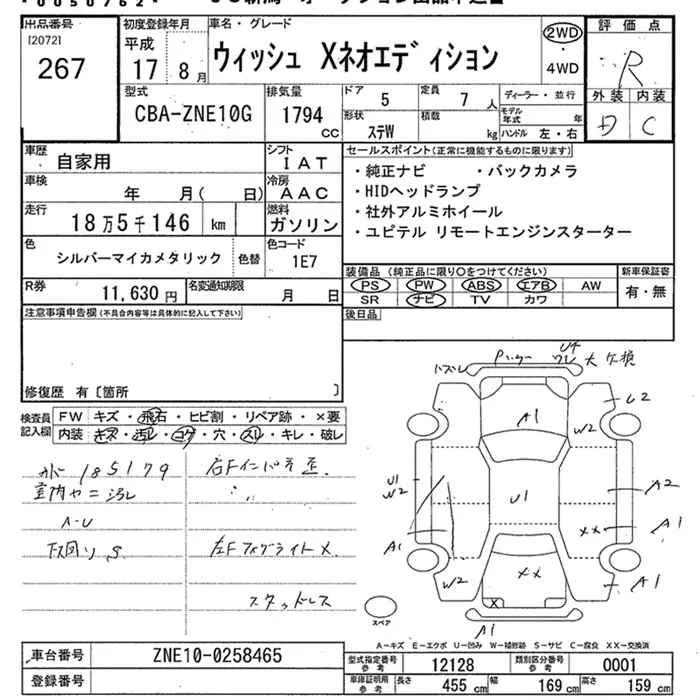 出品番号
I20721
267
初度登録年月
平成
17年8月
車名・グレード
ウィッシュ Xネオエディション
2WD
・
4WD
評価点
R
外装 内装
D C
型式
CBA-ZNE10G
排気量
1794
cc
ドア 5
定員 7人
ディーラー・並行
形状 ステW
積載 kg
モデル年式 年
ハンドル 左・右
車歴 自家用
シフト IAT
車検 年 月( 日)
冷房 AAC
走行 18万5千146 km
燃料 ガソリン
色 シルバーマイカメタリック 色替
色コード 1E7
R券 11,630円
名変通知期限 月 日
セールスポイント(正常に機能するものに限ります)
・純正ナビ ・バックカメラ
・HIDヘッドランプ
・社外アルミホイール
・ユピテル リモートエンジンスターター
装備品(純正品に限り○をつけてください)
新車保証書
PS PW ABS エアB AW
有・無
SR ナビ TV カワ
後日品
注意事項申告欄(不具合内容等は具体的に記入して下さい)
修復歴 有〔箇所 〕
検査員記入欄
FW キズ・飛石・ヒビ割・リペア跡・×要
内装 キズ・汚レ・コゲ・穴・スレ・キレ・破レ
185179
室内ヤニ汚レ
A-U
下回り S
左Fフォグライト×
スタッドレス
U4
A1
U2
W2
U1
W2
U1
A2
A1
XX
A1
W2
XX
A1
X
A1
スペア
A-キズ E-エクボ U-凹み W-補修跡 S-サビ C-腐食 XX-交換済
車台番号 ZNE10-0258465
登録番号
型式指定番号参考 12128
類別区分番号参考 0001
車庫証明用参考 長さ 455cm 幅 169cm 高さ 159cm